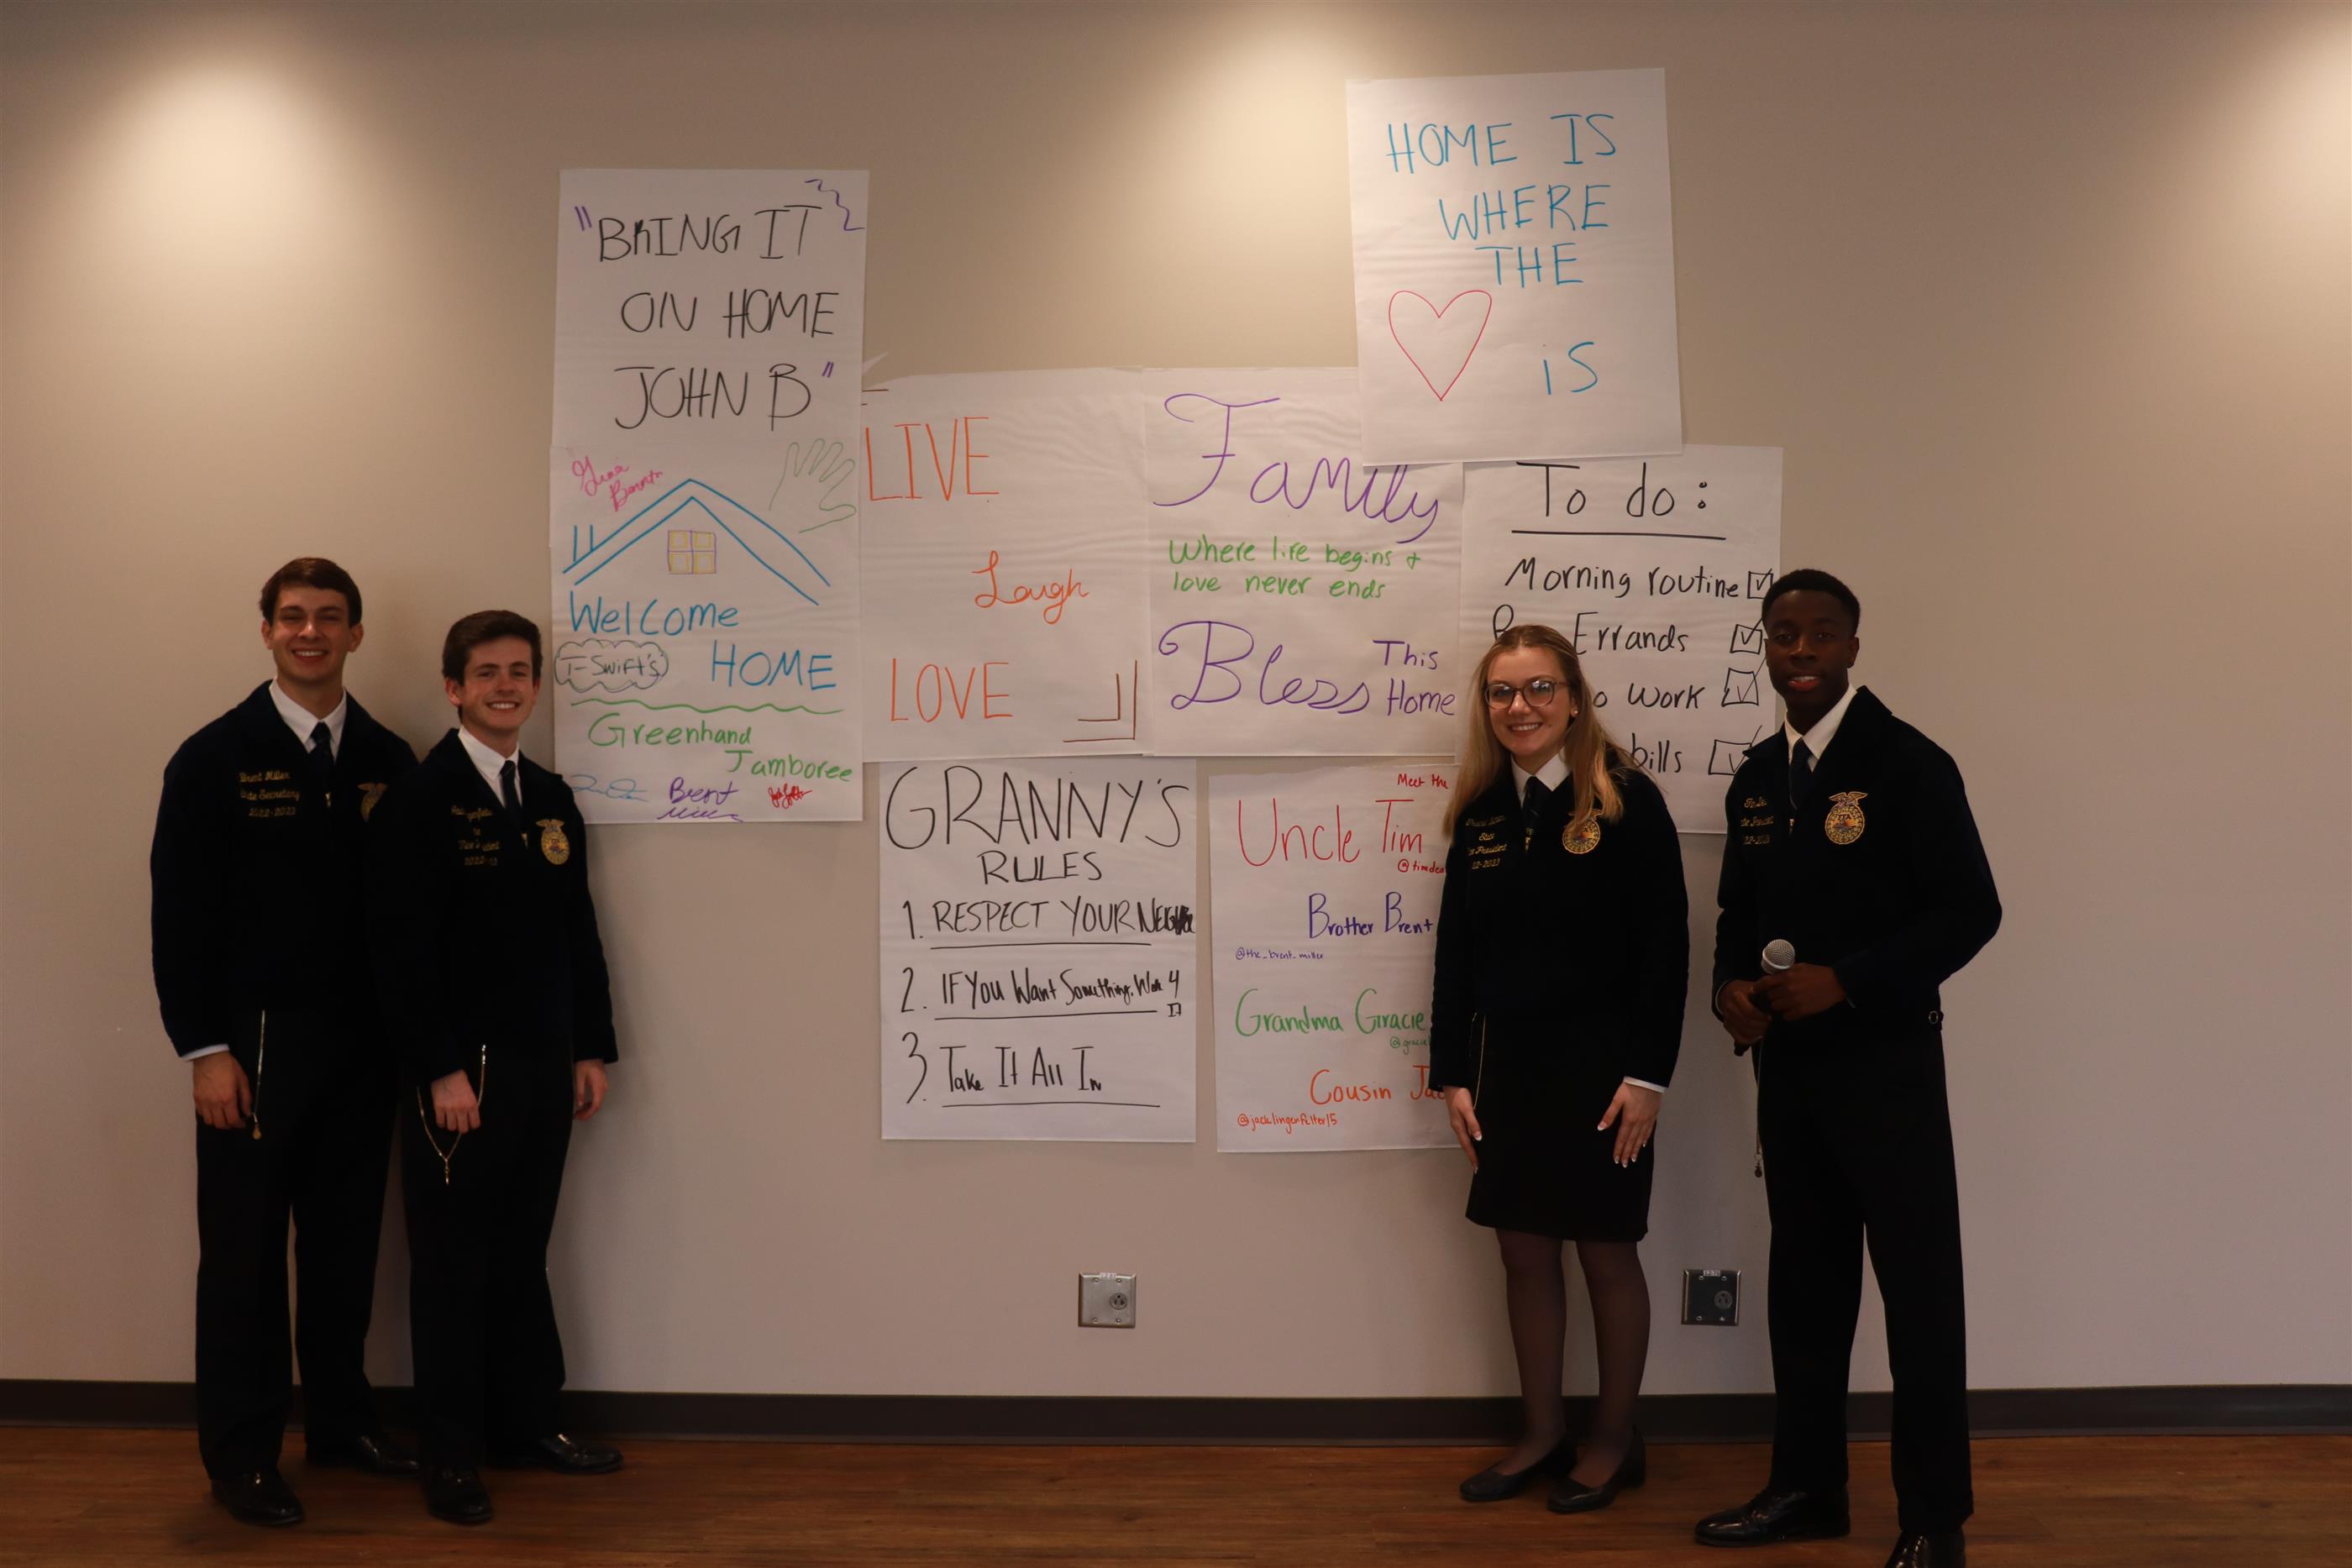 "BRING IT
ON HOME
JOHN B"
Welcome
T-Swift's
HOME
Greenhand
Jamboree
Brent
LIVE
Laugh
LOVE
Family
Where life begins &
love never ends
Bless This
Home
HOME IS
WHERE
THE
iS
To do:
Morning routine
Errands
o Work
bills
GRANNY'S
RULES
1. RESPECT YOUR
2. IF You Want Something, Work 4
It
3. Take It All In
Meet the
Uncle Tim
@timdea
Brother Brent
@the_brent_miller
Grandma Gracie
@gracie
Cousin Jac
@jacklingenfelter15
Brent Miller
State Secretary
2022-2023
2022-23
State
Vice President
22-2023